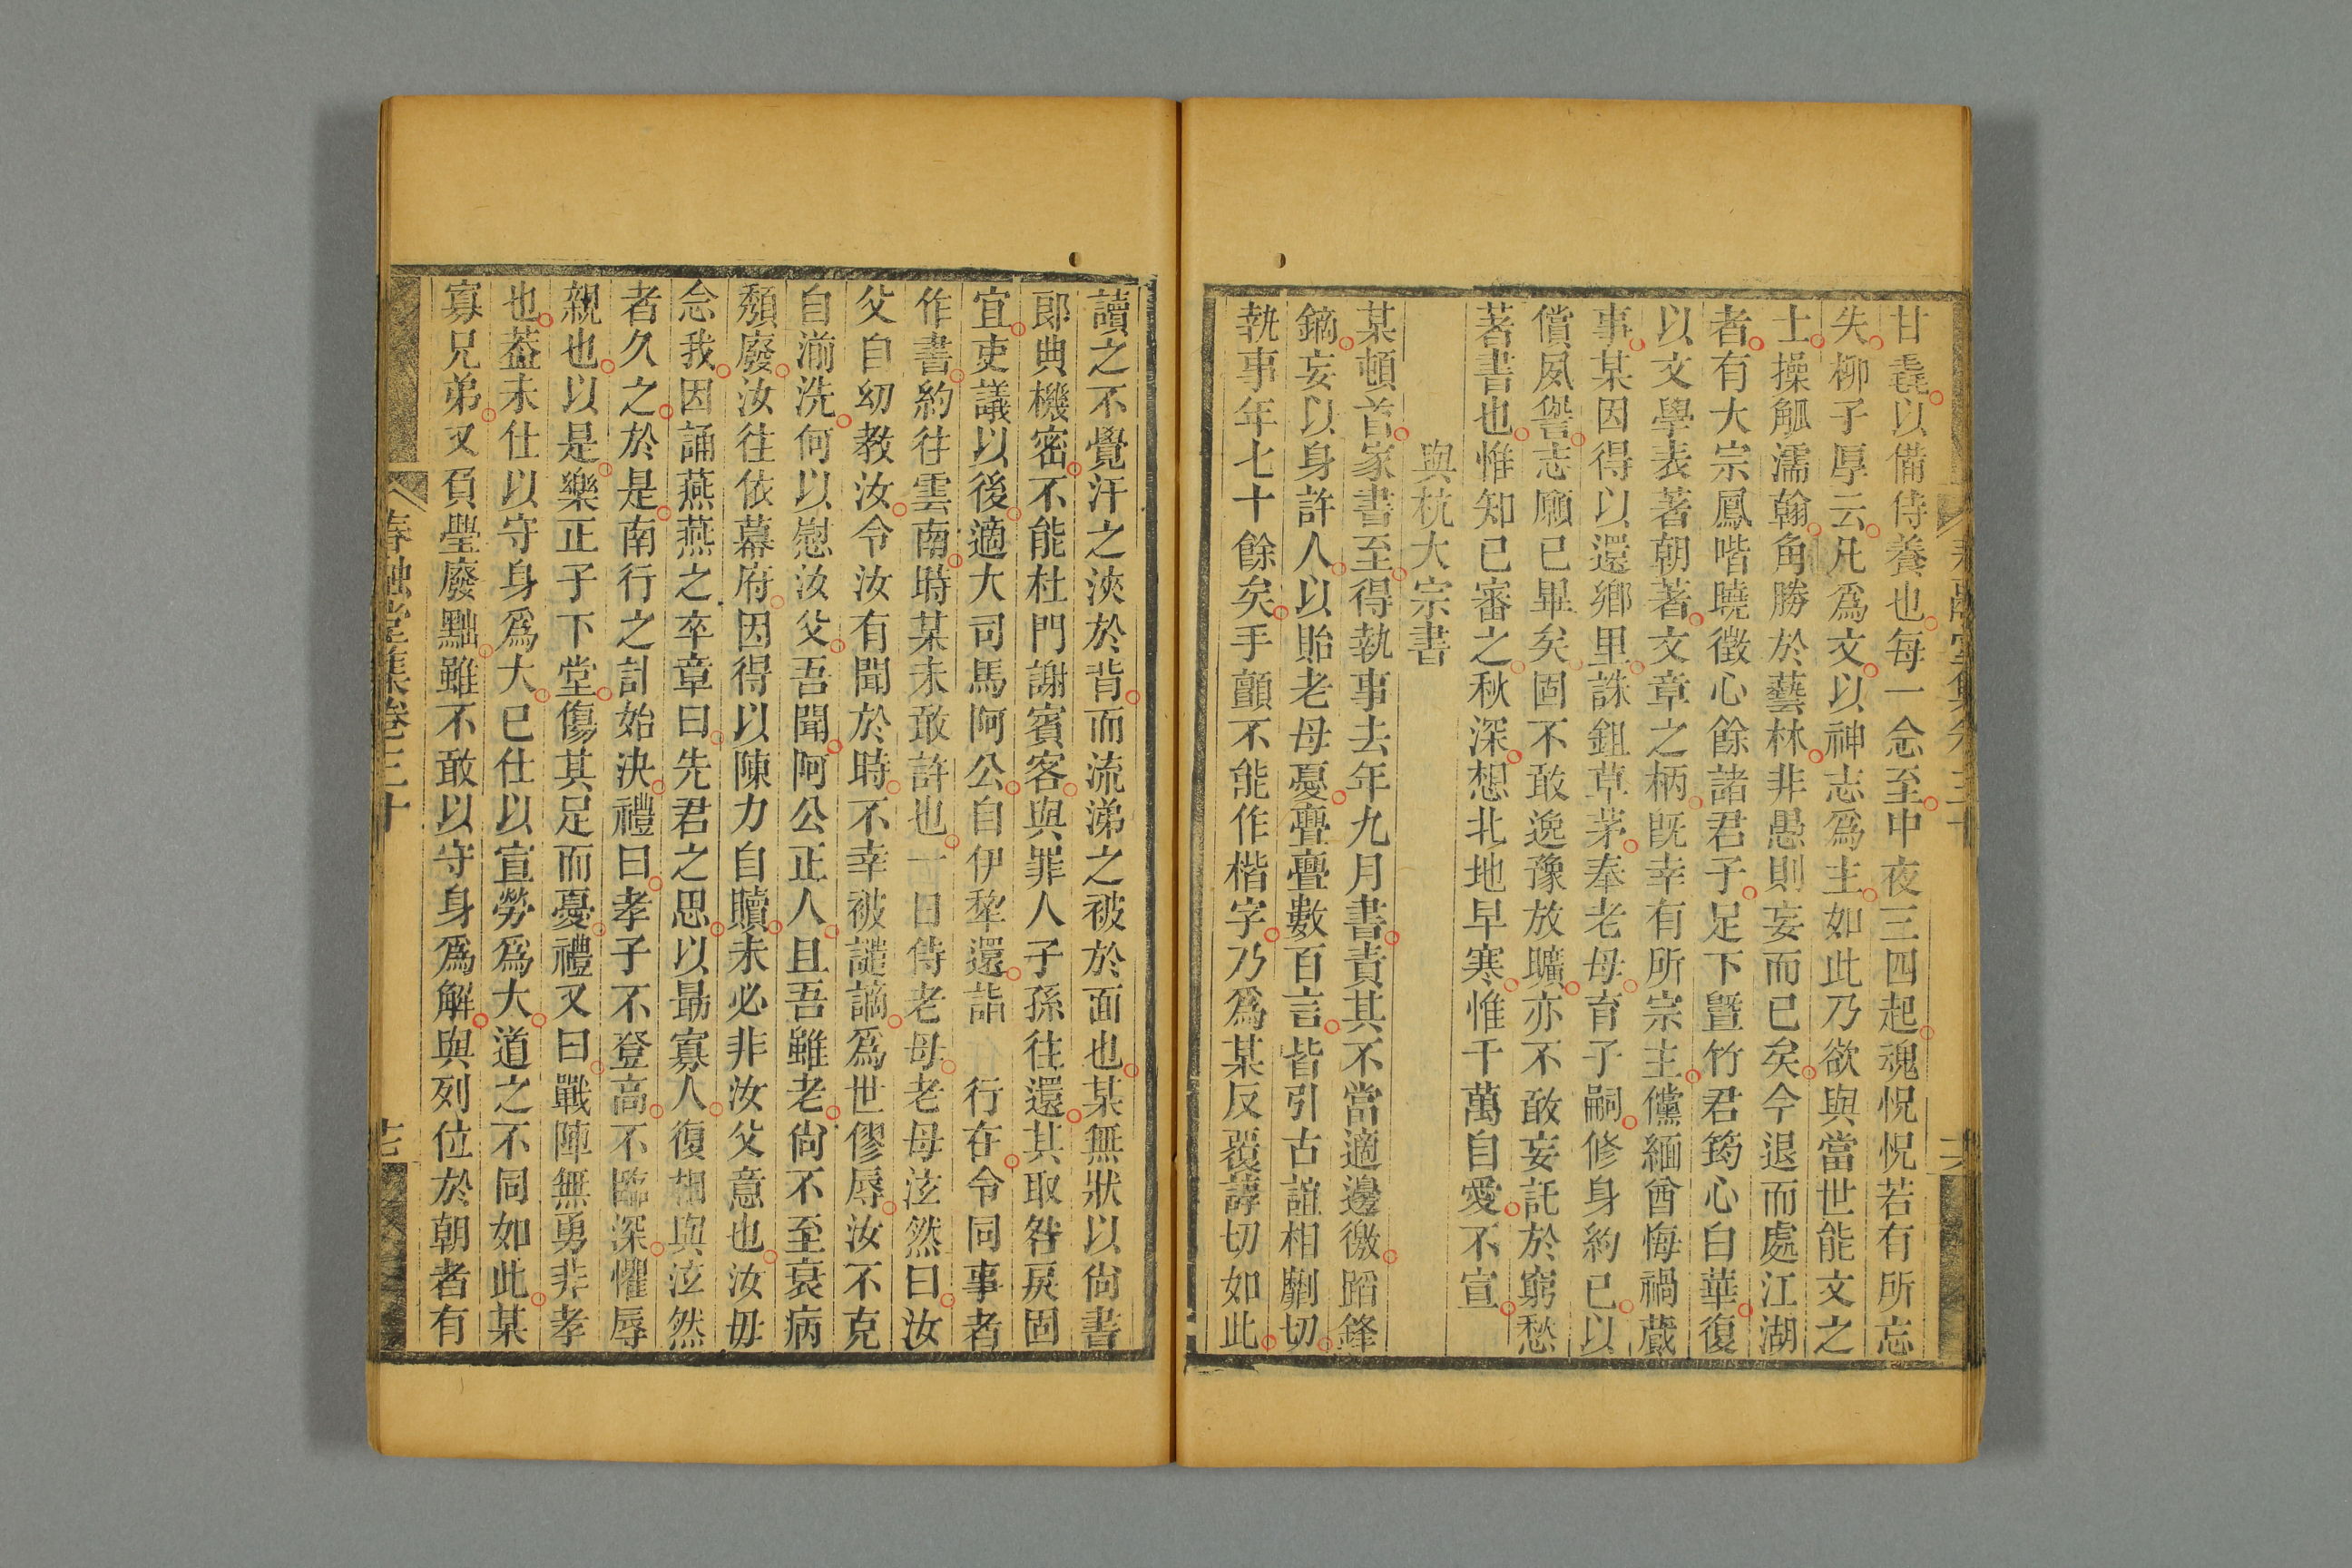 甘毳以備侍養也每一念至中夜三四起魂怳怳若有所忘
失柳子厚云凡爲文以神志爲主如此乃欲與當世能文之
士操觚濡翰角勝於藝林非愚則妄而已矣今退而處江湖
者有大宗鳳喈曉徵心餘諸君子足下曁竹君筠心白華復
以文學表著朝著文章之柄既幸有所宗主儻緬酋悔禍蕆
事某因得以還鄉里誅鉏草茅奉老母育子嗣修身約己以
償夙嚳志願已畢矣固不敢逸豫放曠亦不敢妄託於窮愁
著書也惟知己審之秋深想北地早寒惟千萬自愛不宣
與杭大宗書
某頓首家書至得執事去年九月書責其不當適邊徼蹈鋒
鏑妄以身許人以貽老母憂亹亹數百言皆引古誼相劘切
執事年七十餘矣手顫不能作楷字乃爲某反覆諄切如此
讀之不覺汗之浹於背而流涕之被於面也某無狀以尙書
郎典機密不能杜門謝賓客與罪人子孫往還其取咎戾固
宜吏議以後適大司馬阿公自伊犂還詣 行在令同事者
作書約往雲南時某未敢許也一日侍老母老母泫然曰汝
父自幼教汝令汝有聞於時不幸被譴謫爲世僇辱汝不克
自湔洗何以慰汝父吾聞阿公正人且吾雖老尙不至衰病
頽廢汝往依幕府因得以陳力自贖未必非汝父意也汝毋
念我因誦燕燕之卒章曰先君之思以勗寡人復相與泫然
者久之於是南行之計始決禮曰孝子不登高不臨深懼辱
親也以是樂正子下堂傷其足而憂禮又曰戰陣無勇非孝
也葢未仕以守身爲大已仕以宣勞爲大道之不同如此某
寡兄弟又負舋廢黜雖不敢以守身爲解與列位於朝者有
春融堂集卷三十